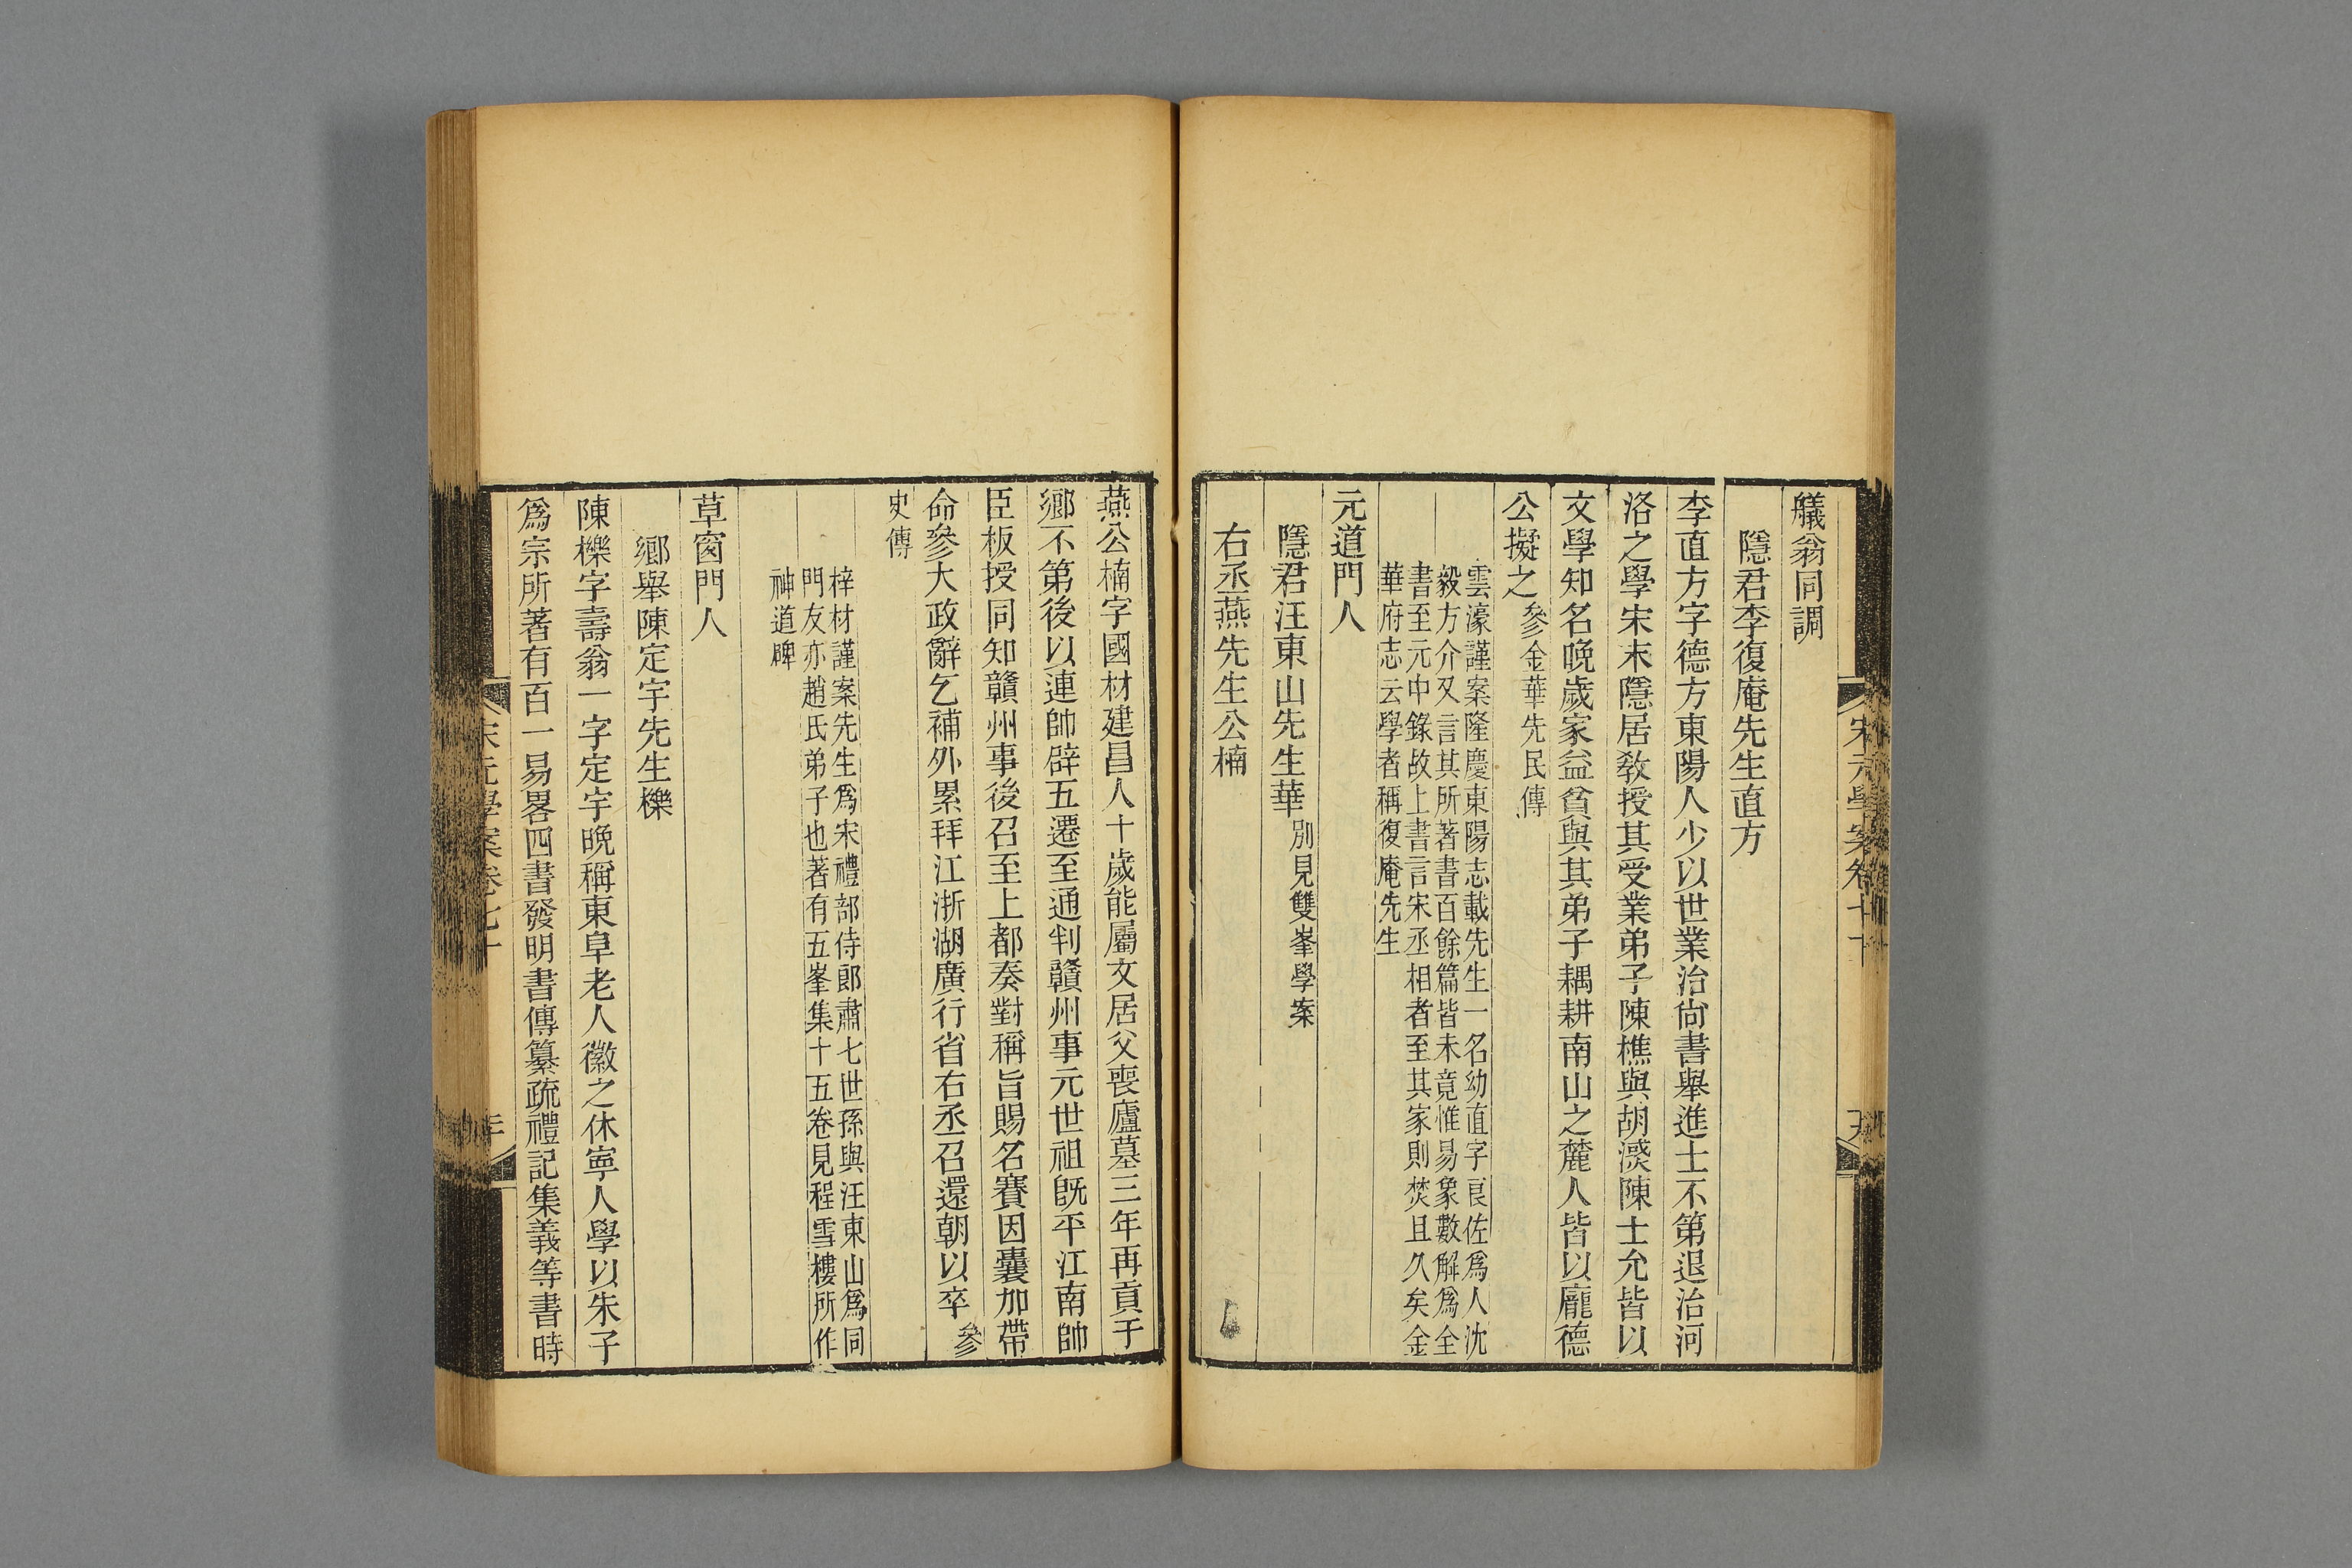 艤翁同調
隱君李復庵先生直方
李直方字德方東陽人少以世業治尙書舉進士不第退治河
洛之學宋末隱居敎授其受業弟子陳樵與胡濙陳士允皆以
文學知名晚歲家益貧與其弟子耦耕南山之麓人皆以龐德
公擬之參金華先民傳
雲濠謹案隆慶東陽志載先生一名幼直字良佐爲人沈
毅方介又言其所著書百餘篇皆未竟惟易象數解爲全
書至元中錄故上書言宋丞相者至其家則焚且久矣金
華府志云學者稱復庵先生
元道門人
隱君汪東山先生華別見雙峯學案
右丞燕先生公楠
燕公楠字國材建昌人十歲能屬文居父喪廬墓三年再貢于
鄉不第後以連帥辟五遷至通判贛州事元世祖旣平江南帥
臣板授同知贛州事後召至上都奏對稱旨賜名賽因囊加帶
命參大政辭乞補外累拜江浙湖廣行省右丞召還朝以卒參
史傳
梓材謹案先生爲宋禮部侍郎肅七世孫與汪東山爲同
門友亦趙氏弟子也著有五峯集十五卷見程雪樓所作
神道碑
草窗門人
鄉舉陳定宇先生櫟
陳櫟字壽翁一字定宇晚稱東阜老人徽之休寧人學以朱子
爲宗所著有百一易畧四書發明書傳纂疏禮記集義等書時
宋元學案卷七十